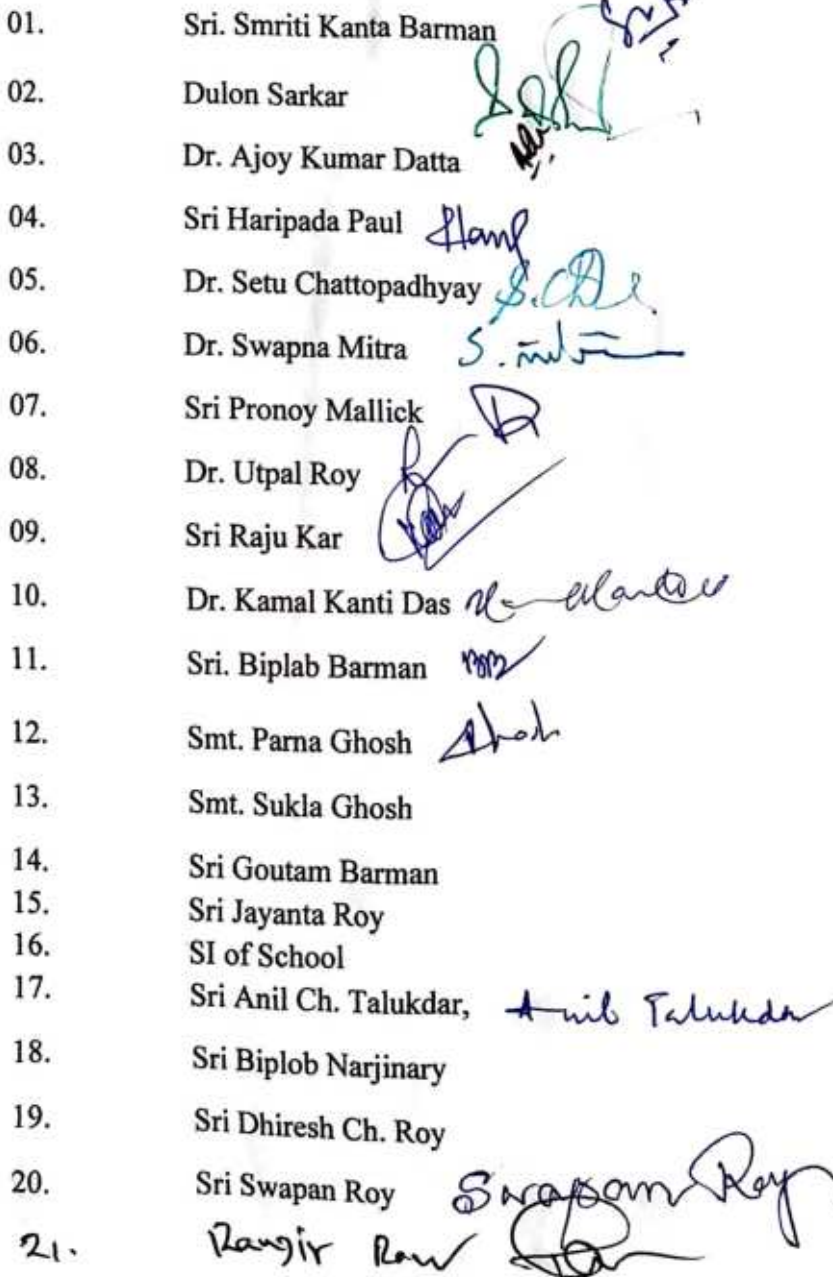 01. Sri. Smriti Kanta Barman
02. Dulon Sarkar
03. Dr. Ajoy Kumar Datta
04. Sri Haripada Paul
05. Dr. Setu Chattopadhyay
06. Dr. Swapna Mitra S. mitra
07. Sri Pronoy Mallick
08. Dr. Utpal Roy
09. Sri Raju Kar
10. Dr. Kamal Kanti Das
11. Sri. Biplab Barman
12. Smt. Parna Ghosh Ghosh
13. Smt. Sukla Ghosh
14. Sri Goutam Barman
15. Sri Jayanta Roy
16. SI of School
17. Sri Anil Ch. Talukdar, Anil Talukdar
18. Sri Biplob Narjinary
19. Sri Dhiresh Ch. Roy
20. Sri Swapan Roy Swapan Roy
21.